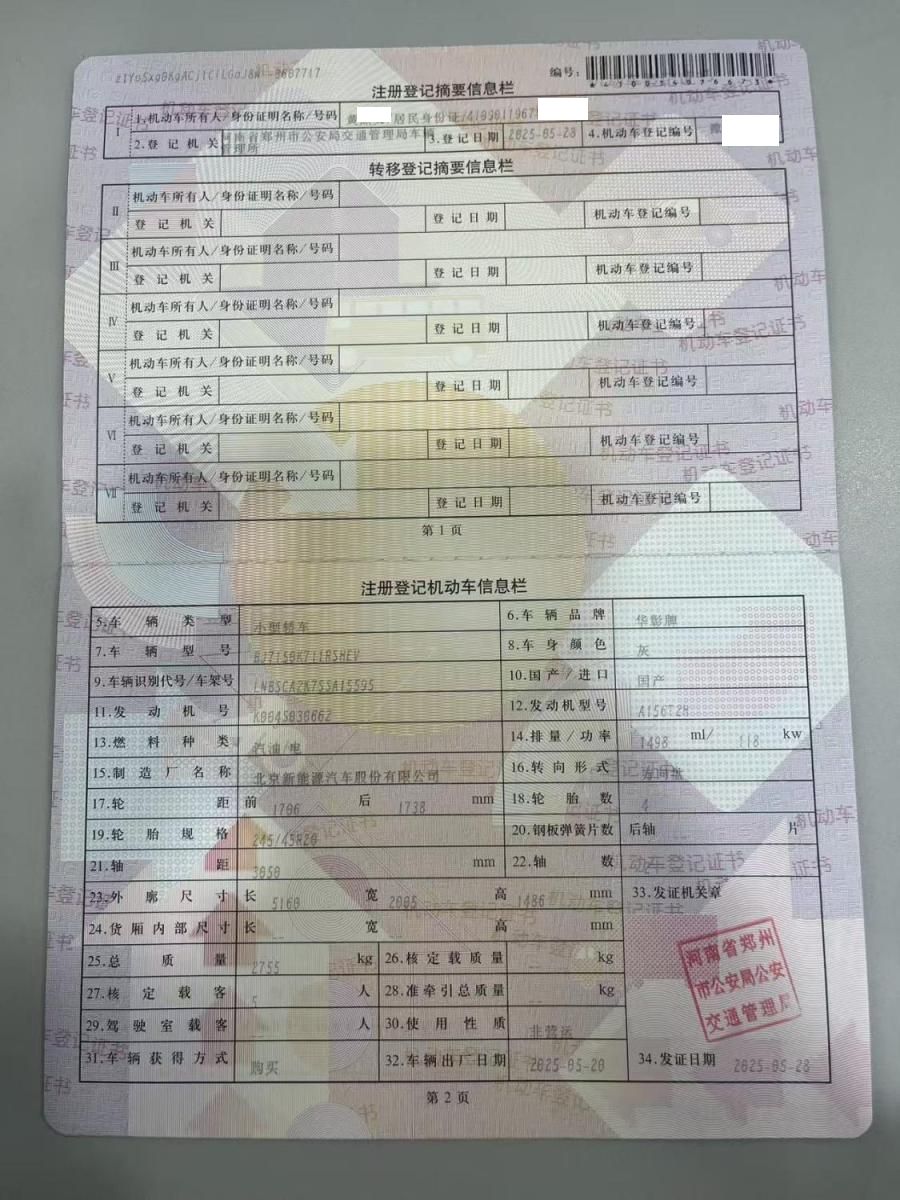 编号：
注册登记摘要信息栏
I 1.机动车所有人/身份证明名称/号码 黄 居民身份证/
2.登记机关 河南省郑州市公安局交通管理局车辆管理所 3.登记日期 2025-05-28 4.机动车登记编号 豫
转移登记摘要信息栏
II 机动车所有人/身份证明名称/号码
登记机关 登记日期 机动车登记编号
III 机动车所有人/身份证明名称/号码
登记机关 登记日期 机动车登记编号
IV 机动车所有人/身份证明名称/号码
登记机关 登记日期 机动车登记编号
V 机动车所有人/身份证明名称/号码
登记机关 登记日期 机动车登记编号
VI 机动车所有人/身份证明名称/号码
登记机关 登记日期 机动车登记编号
VII 机动车所有人/身份证明名称/号码
登记机关 登记日期 机动车登记编号
第1页
注册登记机动车信息栏
5.车辆类型 小型轿车 6.车辆品牌 华彰牌
7.车辆型号 BJ7150K711RSHEV 8.车身颜色 灰
9.车辆识别代号/车架号 LNBSCA2K7SSA15595 10.国产/进口 国产
11.发动机号 K0045030662 12.发动机型号 A156T2H
13.燃料种类 汽油/电 14.排量/功率 1498 ml/ 118 kw
15.制造厂名称 北京新能源汽车股份有限公司 16.转向形式 方向盘
17.轮距 前 1706 后 1738 mm 18.轮胎数 4
19.轮胎规格 245/45R20 20.钢板弹簧片数 后轴 片
21.轴距 3050 mm 22.轴数 2
23.外廓尺寸 长 5160 宽 2005 高 1486 mm 33.发证机关章
24.货厢内部尺寸 长 -- 宽 -- 高 -- mm
25.总质量 2755 kg 26.核定载质量 -- kg
27.核定载客 5 人 28.准牵引总质量 -- kg
29.驾驶室载客 -- 人 30.使用性质 非营运
31.车辆获得方式 购买 32.车辆出厂日期 2025-05-20 34.发证日期 2025-05-28
河南省郑州
市公安局公安
交通管理局
第2页